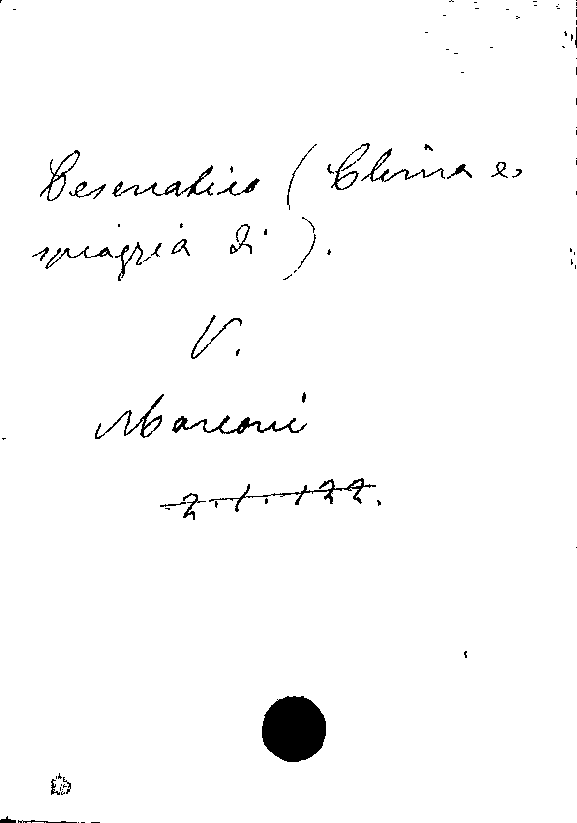 Cesenatico (Clima e
spiaggia di).
V.
Marconi
2.1.122.